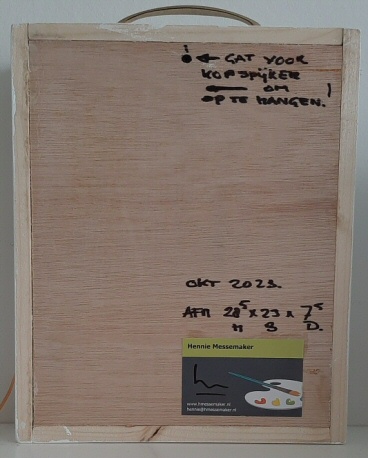 ← GAT VOOR
KOPSPIJKER
← OM
OP TE HANGEN.
OKT 2023.
AFM 28⁵ x 23 x 7⁵
H B D.
Hennie Messemaker
www.hmessemaker.nl
hennie@hmessemaker.nl